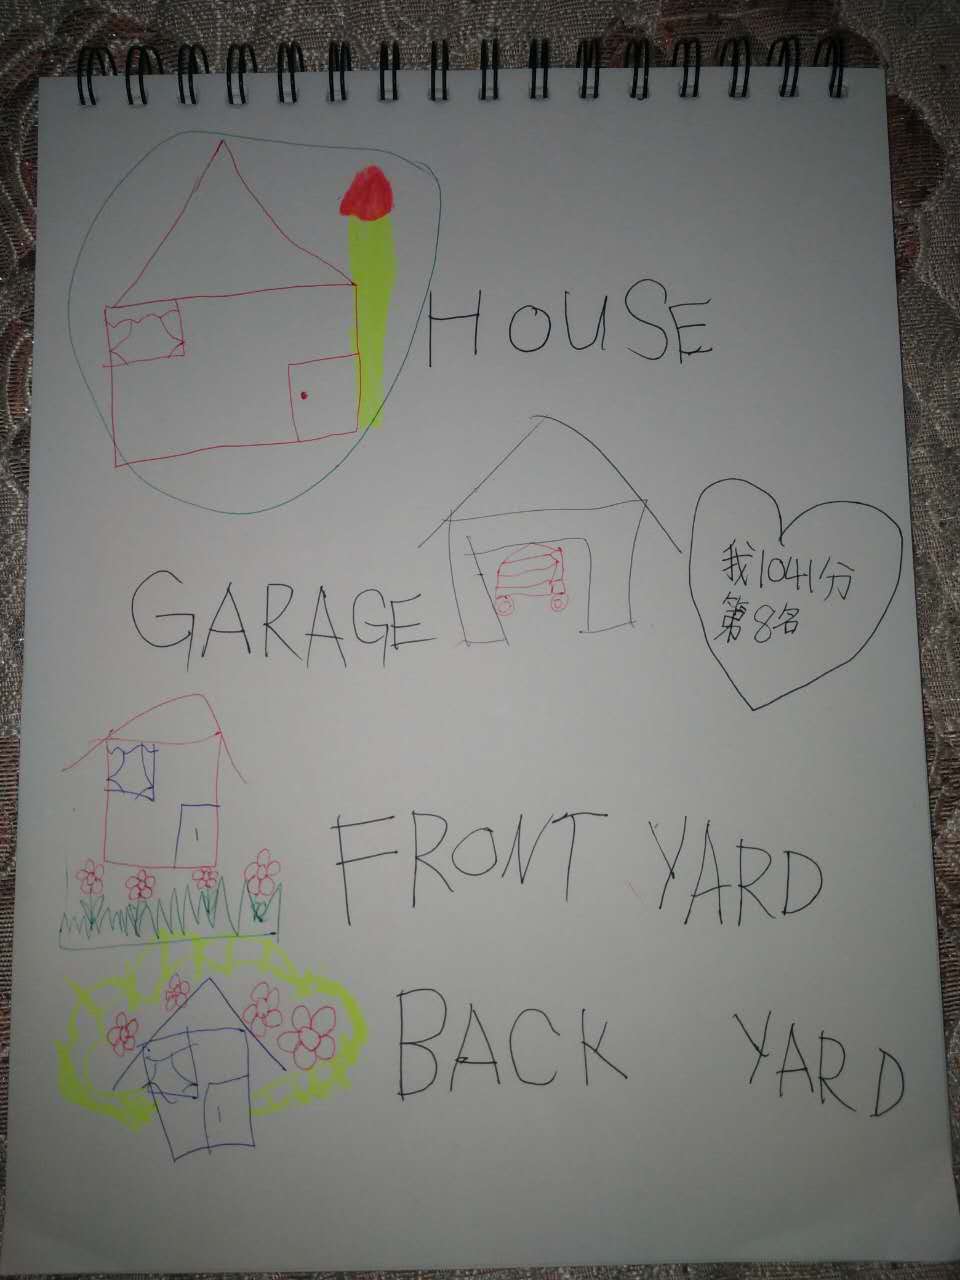 HOUSE
GARAGE
我1041分
第8名
FRONT YARD
BACK YARD